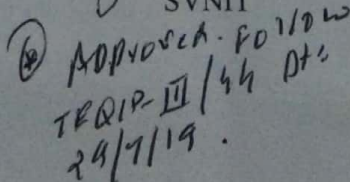 SVNIT
Approved. Follow
TEQIP-III/44 Dt:
29/7/19.